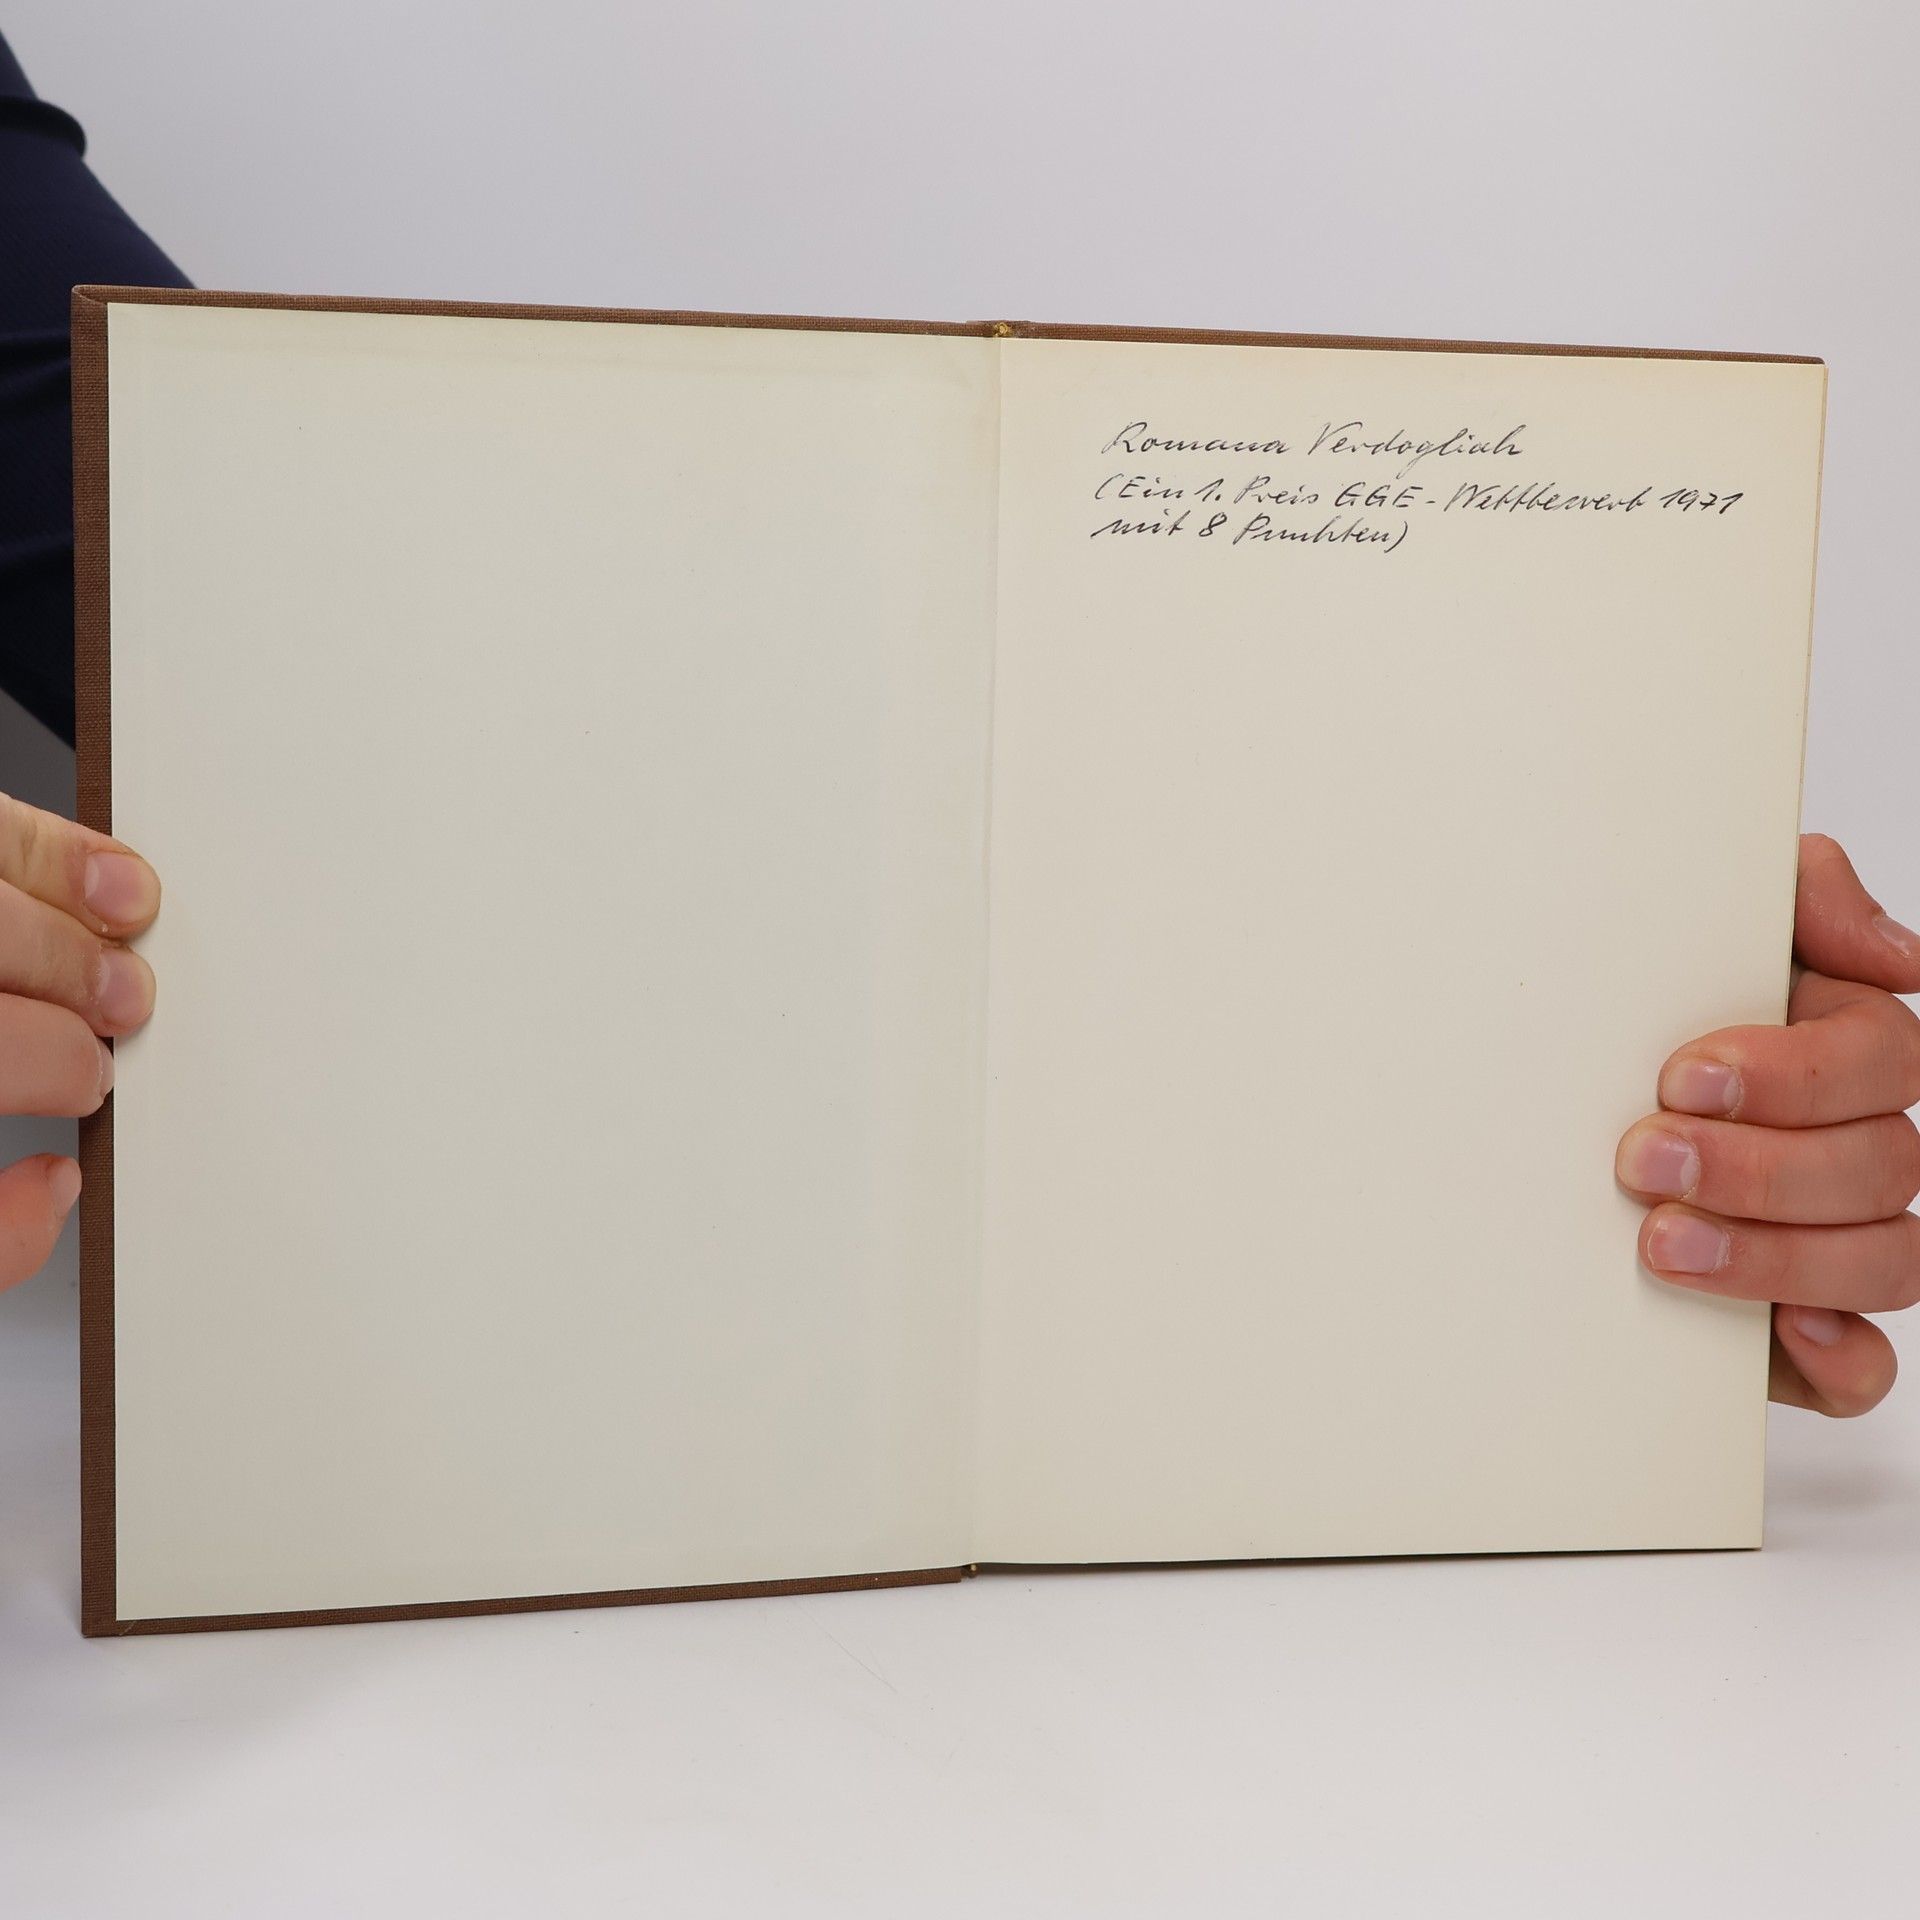 Romana Verdogliah
(Ein 1. Preis GGE-Wettbewerb 1971
mit 8 Punkten)